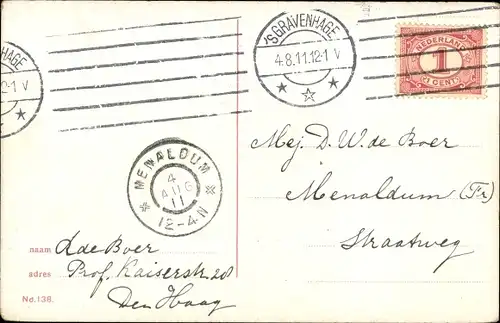 NHAGE
2-1 V
'S GRAVENHAGE
4.8.11.12-1 V
NEDERLAND
1
CENT
Mej. D. W. de Boer
Menaldum (Fr)
Straatweg
MENALDUM
4
AUG
11
12-4N
naam A de Boer
adres Prof. Kaiserstr. 28
Den Haag
No. 138.